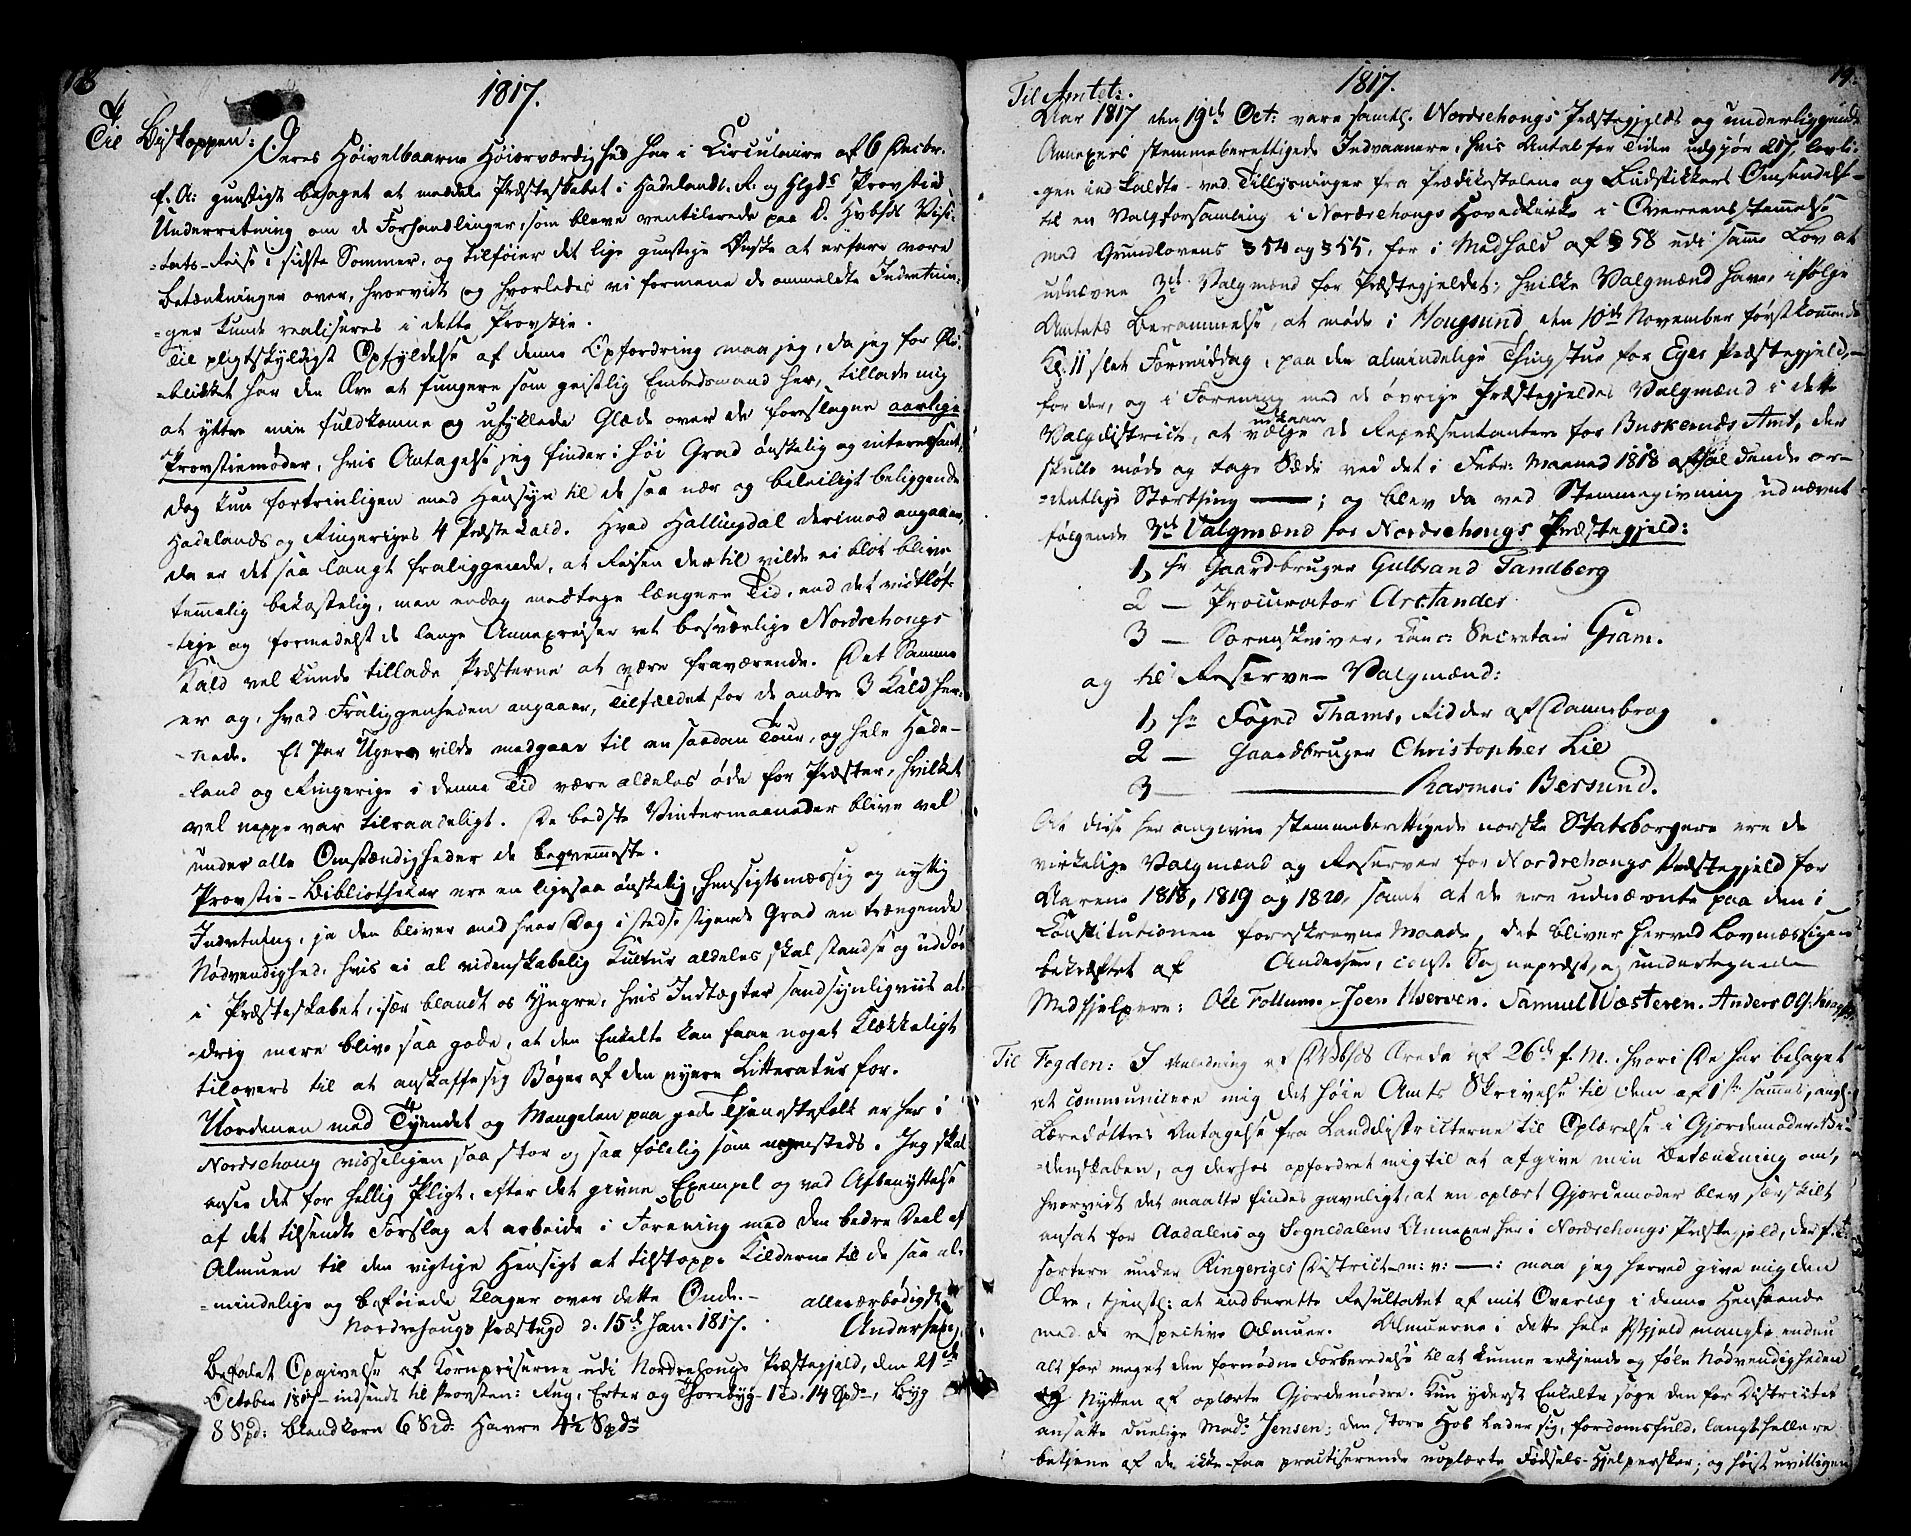 18
1817.
Til Biskoppen:
Deres Høivelbaarne Høiærværdighed har i Circulaire af 6 Decbr.
f. A: gunstigst behaget at meddele Præsteskabet i Hadelands. R. og Hlgds Provstie
Underretning om de Forhandlinger, som bleve ventilerede paa D. Hvbhds Visi-
-tats-Reise i sidste Sommer, og tilføier det lige gunstige Ønske at erfare vore
Betænkninger over, hvorvidt og hvorledes vi formene de ommeldte Indretnin-
-ger kunde realiseres i dette Provstie.
Til pligtskyldigst Opfyldelse af denne Opfordring maa jeg, da jeg for Øie-
-blikket har den Ære at fungere som geistlig Embedsmand her, tillade mig
at yttre min fuldkomne og uhyklede Glæde over de foreslagne aarlige
Provstiemøder, hvis Antagelse jeg finder i høi Grad ønskelig og interessant,
dog kun fortrinligen med Hensyn til de saa nær og beleiligt beliggende
Hadelands og Ringeriges 4 Præstekald. Hvad Hallingdal derimod angaaer,
da er det saa langt fraliggende, at Reisen dertil vilde ei blot blive
temmelig bekostelig, men endog medtage længere Tid, end det vidtløf-
-tige og formedelst de lange Annexreiser ret besværlige Nordrehougs
Kald vel kunde tillade Præsterne at være fraværende. Det Samme
er og, hvad Fraliggenheden angaaer, Tilfældet for de andre 3 Kald her-
-nede. Et Par Uger vilde medgaae til en saadan Tour, og hele Hade-
-land og Ringerige i denne Tid være aldeles øde for Præster, hvilket
vel neppe var tilraadeligt. De bedste Vintermaaneder blive vel
under alle Omstændigheder de beqvemmeste.
Provstie-Bibliotheker ere en ligesaa ønskelig, hensigtsmæssig og nyttig
Indretning, ja den bliver med hver Dag i stedse stigende Grad en trængende
Nødvendighed, hvis ei al videnskabelig Kultur aldeles skal standse og uddøe
i Præsteskabet, især blandt os Yngre, hvis Indtægter sandsynligviis al-
-drig mere blive saa gode, at den Enkelte kan faae noget Klækkeligt
tilovers til at anskaffe sig Bøger af den nyere Litteratur for.
Uordenen med Tyendet og Mangelen paa gode Tjenestefolk er her i
Nordrehoug visseligen saa stor og saa følelig som nogensteds. Jeg skal
ansee det for hellig Pligt, efter det givne Exempel og ved Afbenyttelse
af det tilsendte Forslag at arbeide i Forening med den bedre Deel af
Almuen til den vigtige Hensigt at tilstoppe Kilderne til de saa al-
-mindelige og beføiede Klager over dette Onde.- allerærbødigst
Nordrehougs Præstegd d. 15de Jan. 1817. Andersen,
Befalet Opgivelse af Kornpriserne udi Nordrehougs Præstegjeld, den 21de
October 1817 - indsendt til Provsten: Rug, Erter og Thorebyg - 1 Td. 14 Spd., Byg
8 Spd: Blandkorn 6 Spd: Havre 4½ Spdr
19.
1817.
Til Amtet:
Aar 1817 den 19de Oct: vare samtl. Nordrehougs Præstegjelds og underliggende
Annexers stemmeberettigede Indvaanere, hvis Antal for Tiden udgjør 217, lovli-
-gen indkaldte ved Tillysninger fra Prædikestolene og Budstikkers Omsendelse
til en Valgforsamling i Nordrehougs Hovedkirke i Overeensstemmelse
med Grundlovens § 54 og § 55, for i Medhold af § 58 udi samme Lov at
udnævne 3de Valgmænd for Præstegjeldet; hvilke Valgmænd have, ifølge
Amtets Berammelse, at møde i Hougsund den 10de November førstkommende
Kl. 11 slet Formiddag, paa den almindelige Thingstue for Eger Præstegjeld,
for der, og i Forening med de øvrige Præstegjeldes Valgmænd i dette
Valgdistrict, at udkaare vælge de Repræsentantere for Buskeruds Amt, der
skulle møde og tage Sæde ved det i Febr: Maaned 1818 afholdende or-
-dentlige Storthing ——; og blev da ved Stemmegivning udnævnt
følgende 3de Valgmænd for Nordrehougs Præstegjeld:
1, Hr Gaardbruger Gulbrand Tandberg
2 — Procurator Arctander
3 — Sorenskriver, Canc: Secretair Gram.
og til Reserve-Valgmænd:
1, Hr Foged Thams, Ridder af Dannebrog
2 — Gaardbruger Christopher Lie
3 — —— Rasmus Bersund.
At disse her angivne stemmeberettigede norske Statsborgere ere de
virkelige Valgmænd og Reserver for Nordrehougs Præstegjeld for
Aarene 1818, 1819 og 1820, samt at de ere udnævnte paa den i
Constitutionen foreskrevne Maade, det bliver herved lovmæssigen
bekræftet af Andersen, const. Sognepræst, og undertegnede
Medhjelpere: Ole Follum. Joen Hverven. Samuel Wæsteren. Anders Ols:
Til Fogden: I Anledning af DVbhds Ærede af 26de f. M., hvori De har behaget
at communicere mig det høie Amts Skrivelse til Dem af 1ste sammes, angl.
Læredøttres Antagelse fra Landdistricterne til Oplærelse i Gjordemoder-Vi-
-denskaben, og derhos opfordret mig til at afgive min Betænkning om,
hvorvidt det maatte findes gavnligt, at en oplært Gjordemoder blev særskilt
ansat for Aadalens og Sognedalens Annexer her i Nordrehougs Præstegjeld, der f. t.
sortere under Ringeriges District m: v: ——: maa jeg herved give mig den
Ære, tjenstl: at indberette Resultatet af mit Overlæg i denne Henseende
med de respective Almuer. Almuerne i dette hele Pstgjeld mangle endnu
alt for meget den fornødne Forberedelse til at kunne erkjende og føle Nødvendigheden
og Nytten af oplærte Gjordemødre. Kun yderst Enkelte søge den for Districtet
ansatte duelige Mad: Jensen; den store Hob lader sig, fordomsfuld, langt hellere
betjene af de ikke-faa practiserende uoplærte Fødsels-Hjelpersker; og høist uvilligen